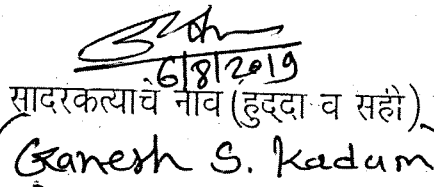 6/8/2019
सादरकर्त्याचे नाव (हुद्दा व सही)
Ganesh S. Kadam